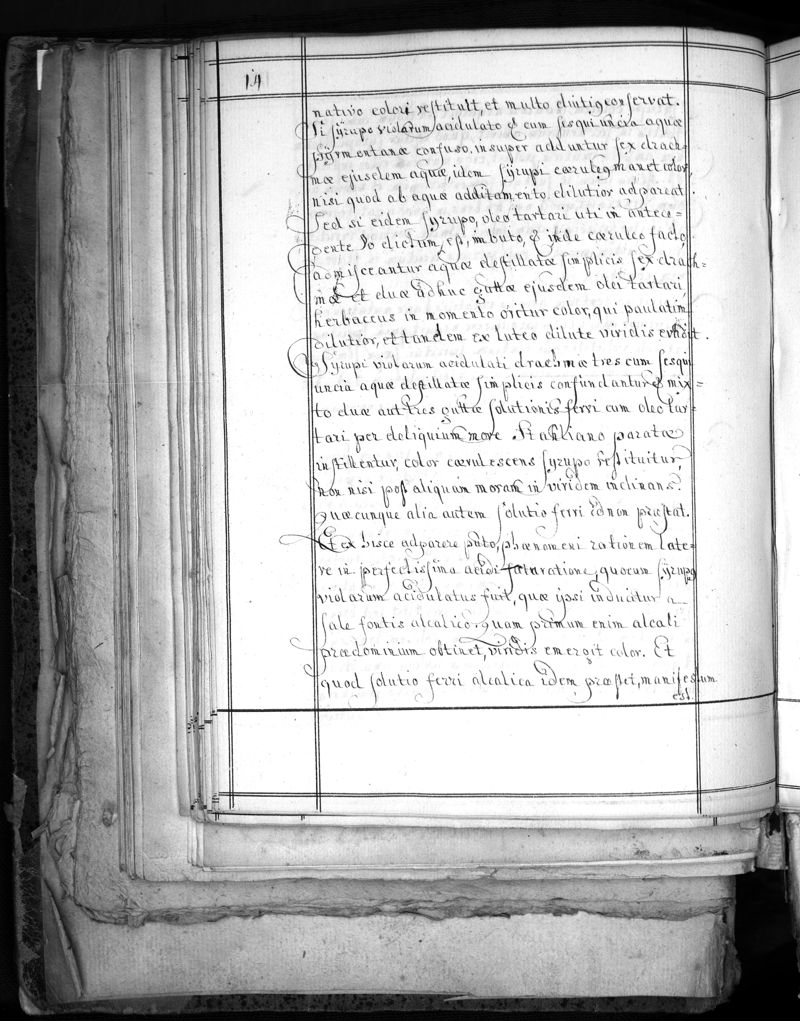 14
nativo colori restituit, et multo diutiq conservat.
Si syrupo violarum acidulato & cum sesqui uncia aquæ
pyrmontanæ confuso, insuper addantur sex drach=
mæ ejusdem aquæ, idem syrupi cæruleq manet color,
nisi quod ab aquæ additamento dilutior adpareat.
Sed si eidem syrupo, oleo tartari uti in antece=
dente dictum est, imbuto, & inde cæruleo facto
admisceantur aquæ destillatæ simplicis sex drach=
mæ et duæ adhuc guttæ ejusdem olei tartari,
herbaceus in momento oritur color, qui paulatim
dilutior, et tandem ex luteo dilute viridis evadit.
Syrupi violarum acidulati drachmæ tres cum sesqui
uncia aquæ destillatæ simplicis confundantur & mix=
to duæ aut tres guttæ solutionis ferri cum oleo tar=
tari per deliquium more Stahliano paratæ
instillentur, color cærulescens syrupo restituitur,
non nisi post aliquam moram in viridem inclinans.
Quæcunque alia autem solutio ferri id non præstat.
Et ex hisce adparere puto, phænomeni rationem late=
re in perfectissima acidi saturatione, quocum syrupq
violarum acidulatus fuit, quæ ipsi inducitur a
sale fontis alcalico. quam primum enim alcali
prædominium obtinet, viridis emergit color. Et
quod solutio ferri alcalica idem præstet, manifestum
est